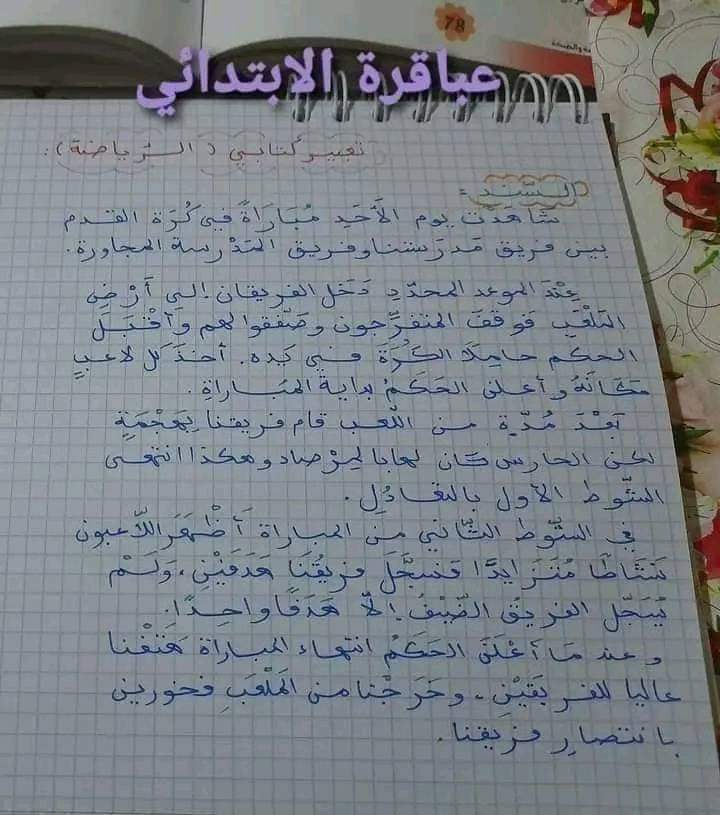 78
عباقرة الابتدائي
تعبير كتابي (الرياضة):
السّند:
شاهدت يوم الأَحَدِ مُبَارَاةً في كُرَة القدم
بين فريق مَدرستنا وفريق المَدْرسة المجاورة.
عِنْدَ الموعد المحدّدِ دَخَل الفريقان إلى أَرْضِ
المَلْعَبِ فَوقفَ المتفرّجون وصَفّقوا لهم وأَقْبَلَ
الحكم حاملا الكُرَة في يَده. أخذَ كل لاعبٍ
مَكَانَهُ وأعلن الحَكَمُ بداية المبَاراة.
بَعْدَ مُدَّة من اللّعب قام فريقنا بِهَجْمَةٍ
لكن الحارس كان لها بالمِرْصاد وهكذا انتهى
الشّوط الأول بالتعَادُلِ.
في الشّوط الثّاني من المباراة أَظْهَرَ اللاّعبون
نَشَاطًا مُتَزَايدًا فَسجَّلَ فريقُنَا هَدَفَيْنِ، وَلَمْ
يُسَجّل الفريق الضّيْفُ إلاّ هَدَفًا واحِدًا.
وعند مَا أَعْلَنَ الحَكَمُ انتهاء المباراة هَتَفْنا
عاليا للفريقَيْن، وخَرَجْنا من المَلْعَبِ فخورين
بانتصارِ فَريقنا.